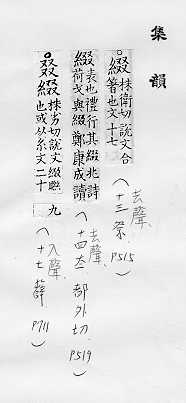 集韻
綴株衛切說文合
箸也文十七
(去聲、十三祭、P515)
綴表也禮行其綴兆詩
荷戈與綴鄭康成讀
(去聲、十四太 部外切、P519)
叕綴株劣切說文綴聯
也或从糸文二十
九
(入聲、十七薛 P711)